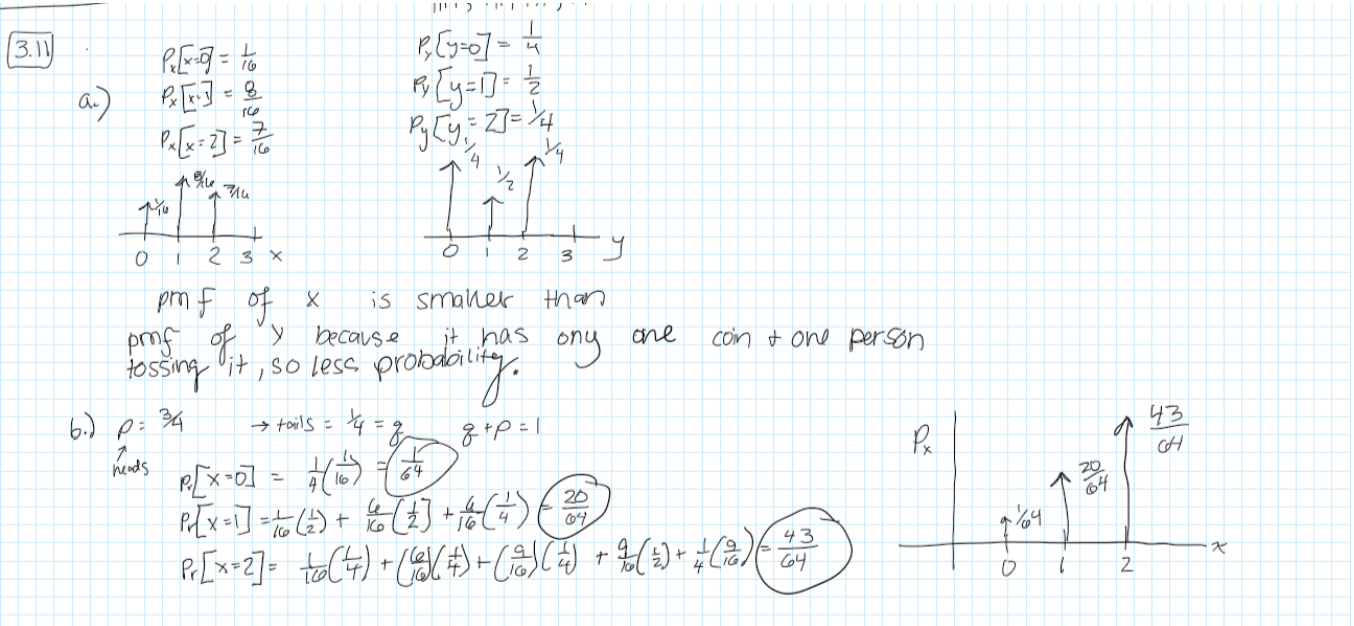 3.11
a.)
Px[x=0] = 1/16
Px[x=1] = 8/16
Px[x=2] = 7/16
Py[y=0] = 1/4
Py[y=1] = 1/2
Py[y=2] = 1/4
1/16 8/16 7/16
0 1 2 3 x
1/4 1/2 1/4
0 1 2 3 y
pmf of x is smaller than
pmf of y because it has ony one coin + one person
tossing it, so less probability.
b.) p = 3/4 → tails = 1/4 = q q + p = 1
heads
Pr[x=0] = 1/4(1/16) = 1/64
Pr[x=1] = 1/16(1/2) + 6/16(1/2] + 6/16(1/4) = 20/64
Pr[x=2] = 1/16(1/4) + (6/16)(1/4) + (9/16)(1/4) + 9/16(1/2) + 1/4(9/16) = 43/64
Px
1/64 20/64 43/64
0 1 2 x